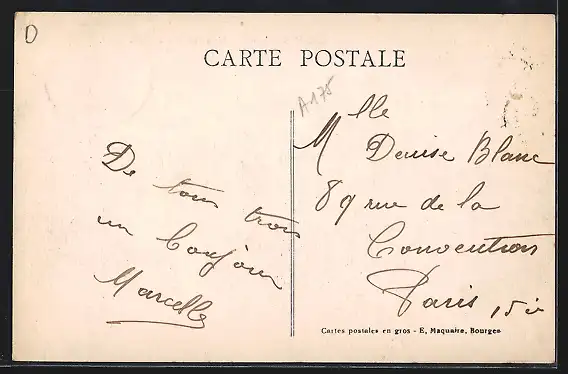 D
CARTE POSTALE
A175
De tous trois
un bonjour
Marcelle
Mlle
Denise Blanc
89 rue de la
Convention
Paris 15e
Cartes postales en gros - E. Maquaire, Bourges